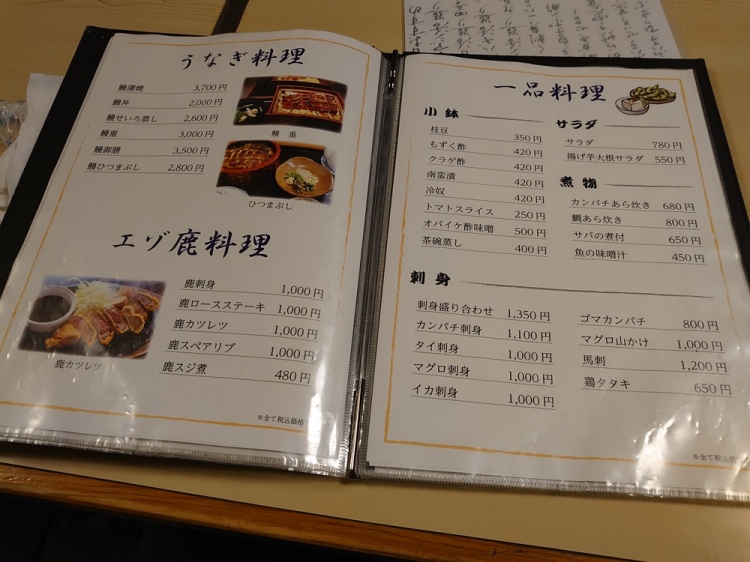 うなぎ料理
鰻蒲焼 3,700円
鰻丼 2,000円
鰻せいろ蒸し 2,600円
鰻重 3,000円
鰻御膳 3,500円
鰻ひつまぶし 2,800円
鰻 重
ひつまぶし
エゾ鹿料理
鹿刺身 1,000円
鹿ロースステーキ 1,000円
鹿カツレツ 1,000円
鹿スペアリブ 1,000円
鹿スジ煮 480円
鹿カツレツ
※全て税込価格
一品料理
小鉢
枝豆 350円
もずく酢 420円
クラゲ酢 420円
南蛮漬 420円
冷奴 420円
トマトスライス 250円
オバイケ酢味噌 500円
茶碗蒸し 400円
サラダ
サラダ 780円
揚げ芋大根サラダ 550円
煮物
カンパチあら炊き 680円
鯛あら炊き 800円
サバの煮付 650円
魚の味噌汁 450円
刺身
刺身盛り合わせ 1,350円
カンパチ刺身 1,100円
タイ刺身 1,000円
マグロ刺身 1,000円
イカ刺身 1,000円
ゴマカンパチ 800円
マグロ山かけ 1,000円
馬刺 1,200円
鶏タタキ 650円
※全て税込価格